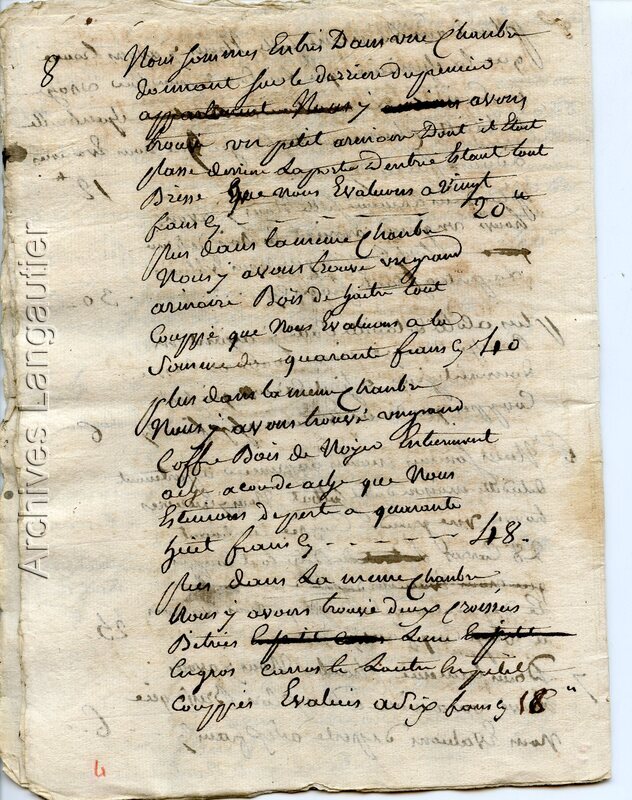 8 Nous sommes Entres Dans une Chanbre
donnant sur le darriere du premier
appartement Nous y avons
trouvé un petit armoire Dont il Etoit
plasse derriere la porte Dentrée Etant tout
Brisse que Nous Evaluons a Vingt
frans 20
plus dans la meme Chanbre
Nous y avons trouvé un grand
armoire Bois de haitre tout
Couppé que Nous Evaluons a la
Somme de quarante frans 40
plus dans la meme Chanbre
Nous y avons trouvé un grand
Coffre Bois de Noyer Entierement
a coude que Nous
Estimons de perte a quarante
huit frans 48
plus dans La meme Chanbre
Nous y avons trouvé deux Croisses
Bitrées Lune
en gros carros & Lautre en petit
Couppés Evalués a dix frans 18
4
Archives Langautier